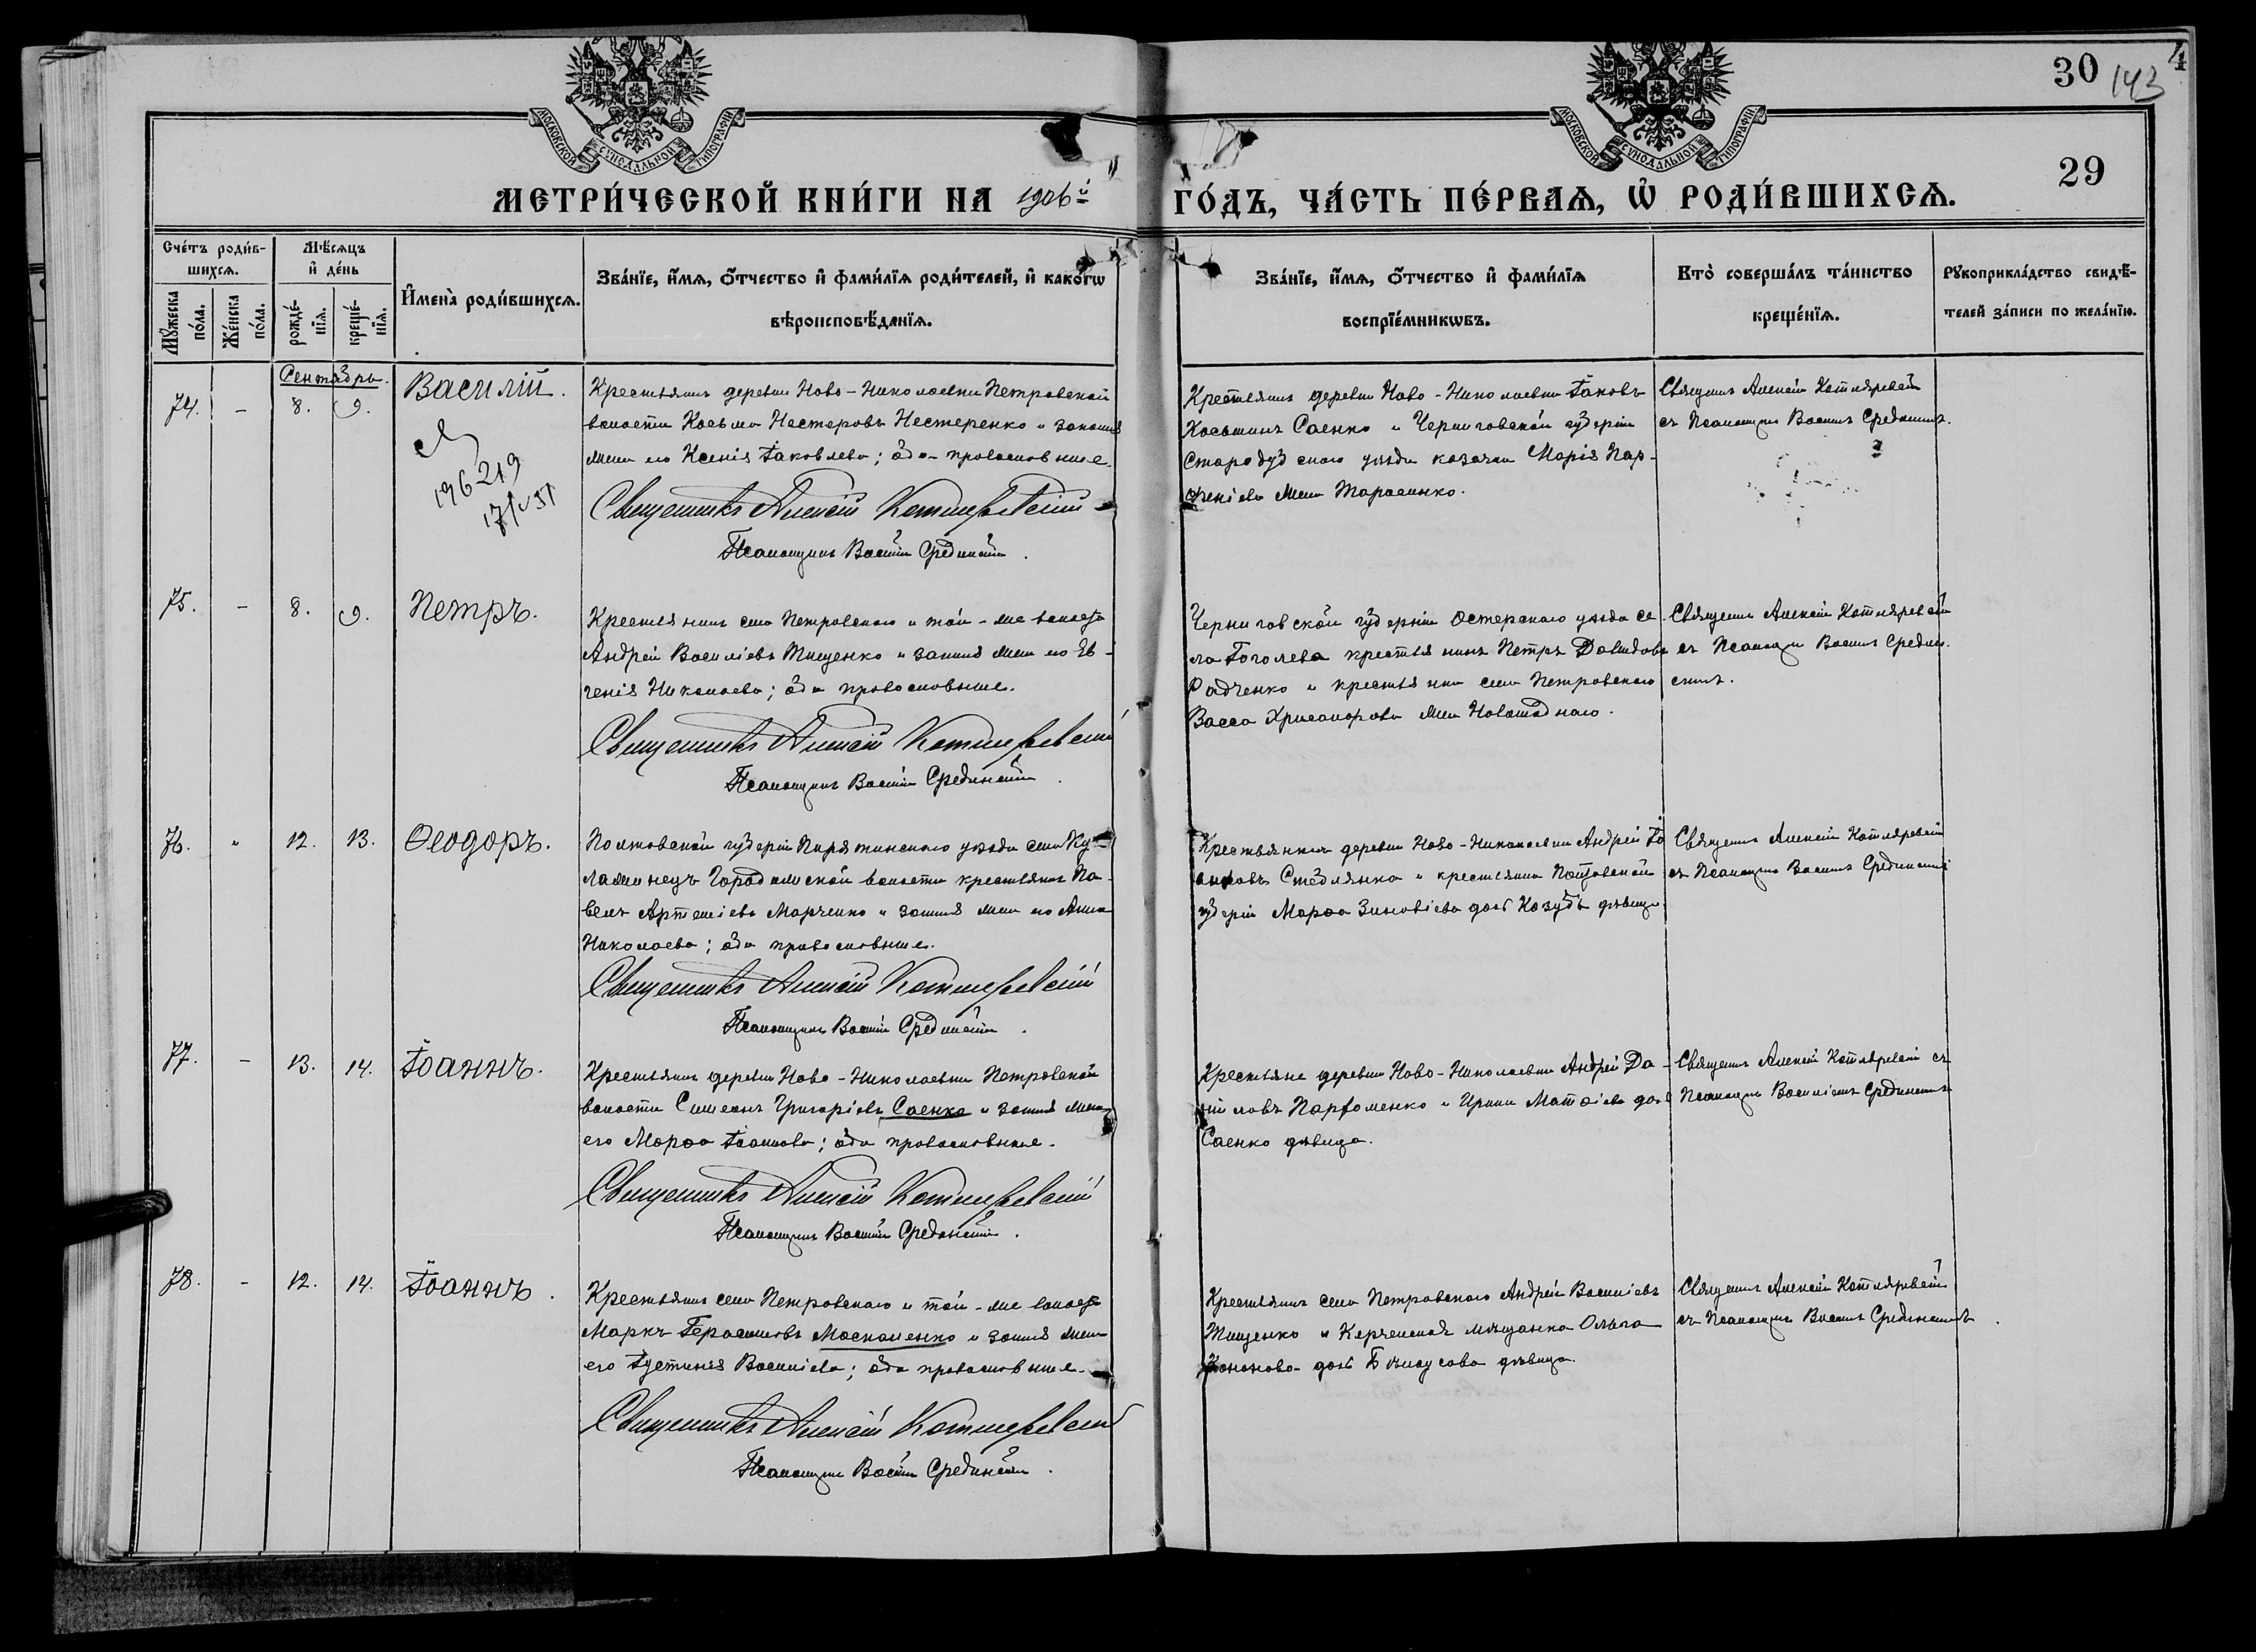 30 143
29
МОСКОВСКОЙ СѴНОДАЛЬНОЙ ТИПОГРАФІИ
МОСКОВСКОЙ СѴНОДАЛЬНОЙ ТИПОГРАФІИ
МЕТРИ́ЧЕСКОЙ КНИ́ГИ НА 1906й ГО́ДЪ, ЧА́СТЬ ПЕ́РВАѦ, Ѡ҆ РОДИ́ВШИХСѦ.
Сче́тъ роди́в-
шихсѧ.
Мѣ́сяцъ
и҆ де́нь
Мꙋ́жеска
по́ла.
Же́нска
по́ла.
рожде́-
нїѧ.
креще́-
нїѧ.
И҆мена̀ роди́вшихсѧ.
Зва́нїе, и҆́мѧ, ѻ҆́тчество и҆ фами́лїѧ роди́телей, и҆ како́гѡ
вѣроисповѣ́данїѧ.
Зва́нїе, и҆́мѧ, ѻ҆́тчество и҆ фами́лїѧ
воспрїе́мникѡвъ.
Кто̀ соверша́лъ та́инство
креще́нїѧ.
Рꙋкоприкла́дство свидѣ́-
телей за́писи по жела́нїю.
Сентябрь.
74. - 8. 9. Василій.
196219
Крестьянинъ деревни Ново-Николаевки Петровской
волости Косьма Нестеровъ Нестеренко и законная
жена его Ксенія Іаковлева; оба православные.
Священникъ Алексій Котляревскій
Псаломщикъ Василій Срединскій.
Крестьянинъ деревни Ново-Николаевки Іаковъ
Косьминъ Саенко и Черниговской губерніи
Стародубскаго уѣзда казачка Марія Пар-
ѳеніева жена Тарасенко.
Священникъ Алексій Котляревскій
съ Псаломщик. Василіемъ Срединскимъ.
75. - 8. 9. Петръ.
Крестьянинъ села Петровскаго и той-же волости
Андрей Василіевъ Тищенко и законная жена его Ев-
генія Николаева; оба православные.
Священникъ Алексій Котляревскій
Псаломщикъ Василій Срединскій.
Черниговской губерніи Остерскаго уѣзда се-
ла Гоголева крестьянинъ Петръ Давидовъ
Радченко и крестьянка села Петровскаго
Васса Хрисанфова жена
Священникъ Алексій Котляревскій
съ Псаломщик. Василіемъ Средин-
скимъ.
76. " 12. 13. Ѳеодоръ.
Полтовской губерніи Пирятинскаго уѣзда села Ку-
лажинецъ Городишской волости крестьянинъ Па-
велъ Артеміевъ Марченко и законная жена его Анна
Николаева; оба православные.
Священникъ Алексій Котляревскій
Псаломщикъ Василій Срединскій.
Крестьянинъ деревни Ново-Николаевки Андрей Іо
анновъ Стеблянко и крестьянка Полтовской
губерніи Марѳа Зиновіева дочь Козубъ дѣвица.
Священникъ Алексій Котляревскій
съ Псаломщик. Василіемъ Срединскимъ
77. - 13. 14. Іоаннъ.
Крестьянинъ деревни Ново-Николаевки Петровской
волости Симеонъ Григоріевъ Саенко и законная жена
его Марѳа Іоаннова; оба православные.
Священникъ Алексій Котляревскій
Псаломщикъ Василій Срединскій.
Крестьяне деревни Ново-Николаевки Андрей Да-
ніиловъ Парфоменко и Ирина Матѳіева дочь
Саенко дѣвица.
Священникъ Алексій Котляревскій съ
Псаломщик. Василіемъ Срединскимъ
78. - 12. 14. Іоаннъ.
Крестьянинъ села Петровскаго и той-же волости
Маркъ Герасимовъ Москаленко и законная жена
его Іустинія Василіева; оба православные.
Священникъ Алексій Котляревскій
Псаломщикъ Василій Срединскій.
Крестьянинъ села Петровскаго Андрей Василіевъ
Тищенко и Керченская мѣщанка Ольга
Кононова дочь Бѣлоусова дѣвица.
Священникъ Алексій Котляревскій
съ Псаломщик. Василіемъ Срединскимъ.